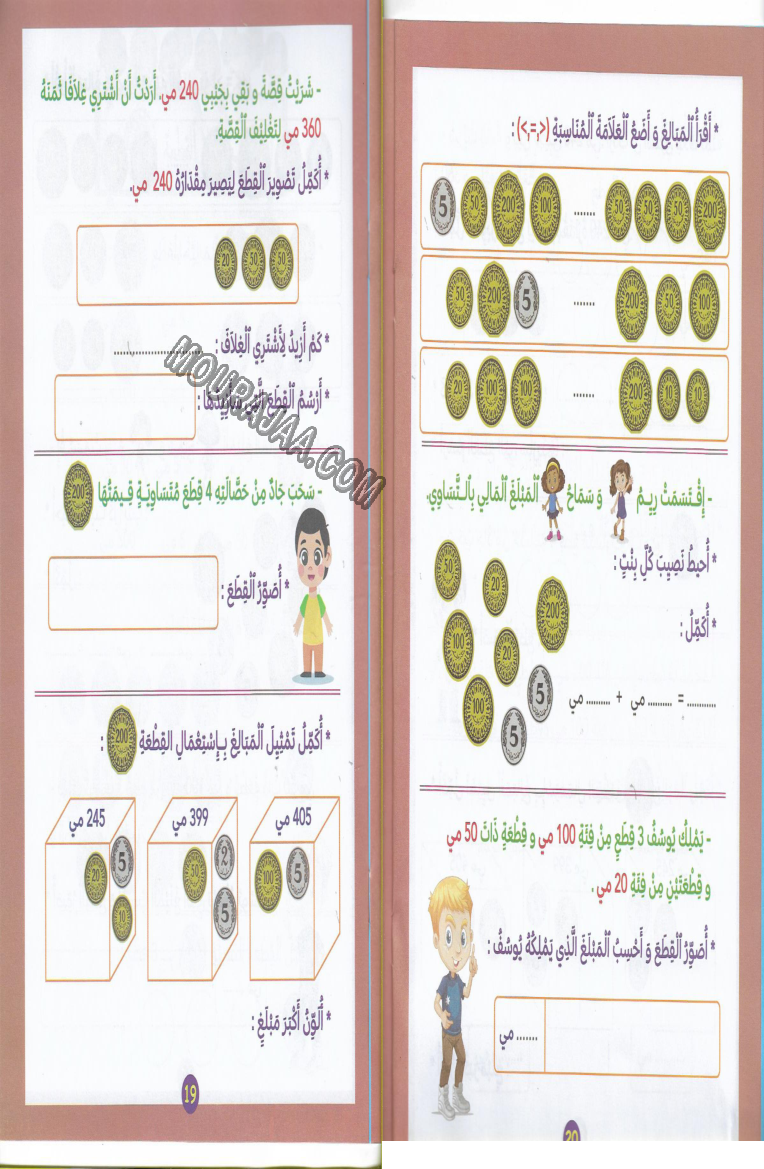 - شَرَيْتُ قِصَّةً و بَقِي بِجَيْبِي 240 مي. أَرَدْتُ أَنْ أَشْتَرِي غِلَافًا ثَمَنُهُ
360 مي لِتَغْلِيفِ ٱلْقِصَّةِ.
* أُكَمِّلُ تَصْوِيرَ ٱلْقِطَعَ لِيَصِيرَ مِقْدَارُهُ 240 مي.
20 50 50
* كَمْ أَزِيدُ لِأَشْتَرِي ٱلْغِلَافَ : ............................
* أَرْسُمُ ٱلْقِطَعَ ٱلَّتِي سَأَزِيدُهَا :
MOURAJAA.COM
- سَحَبَ جَادٌ مِنْ حَصَّالَتِهِ 4 قِطَعٍ مُتَسَاوِيَةٍ قِيمَتُهَا 200
* أُصَوِّرُ ٱلْقِطَعَ :
* أُكَمِّلُ تَمْثِيلَ ٱلْمَبَالِغَ بِإِسْتِعْمَالِ القِطْعَةِ 200 :
405 مي
399 مي
245 مي
100 5
50 2 5
20 5 10
* أُلَوِّنُ أَكْبَرَ مَبْلَغٍ :
19
* أَقْرَأُ ٱلْمَبَالِغَ وَ أَضَعُ ٱلْعَلَامَةَ ٱلْمُنَاسِبَةِ (<,=,>) :
5 50 200 100 ....... 50 50 50 200
50 200 5 ....... 200 50 100
20 100 100 ....... 200 10 10
- إِقْتَسَمَتْ رِيمُ وَ سَمَاحُ ٱلْمَبْلَغَ ٱلْمَالِي بِٱلتَّسَاوِي.
* أُحِيطُ نَصِيبَ كُلَّ بِنْتٍ :
* أُكَمِّلُ :
50 20 200
100 20
100 5
5
........... = ......... مي + ......... مي
- يَمْلِكُ يُوسُفُ 3 قِطَعٍ مِنْ فِئَةِ 100 مي و قِطْعَةٍ ذَاتَ 50 مي
و قِطْعَتَيْنِ مِنْ فِئَةِ 20 مي .
* أُصَوِّرُ ٱلْقِطَعَ وَ أَحْسِبُ ٱلْمَبْلَغَ ٱلَّذِي يَمْلِكُهُ يُوسُفُ :
....... مي
20